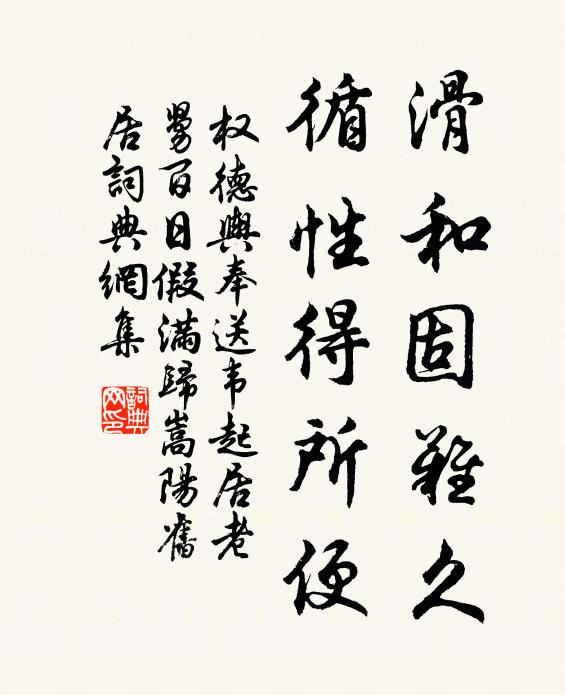 滑和固難久
循性得所便
权德輿奉送韦起居老
舅百日假滿歸嵩陽舊
居詞典網集
詞典
网印